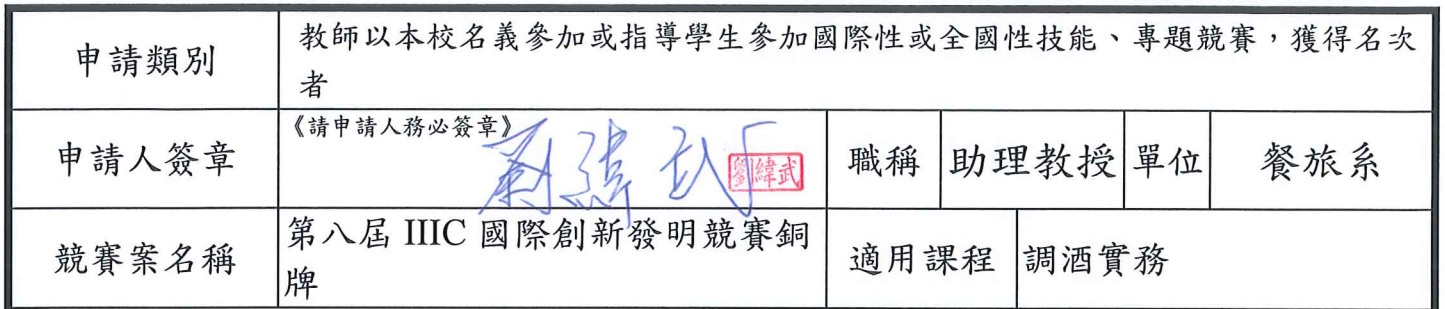 申請類別
教師以本校名義參加或指導學生參加國際性或全國性技能、專題競賽，獲得名次
者
申請人簽章
《請申請人務必簽章》
劉緯武
劉緯武
職稱
助理教授
單位
餐旅系
競賽案名稱
第八屆 IIIC 國際創新發明競賽銅
牌
適用課程
調酒實務